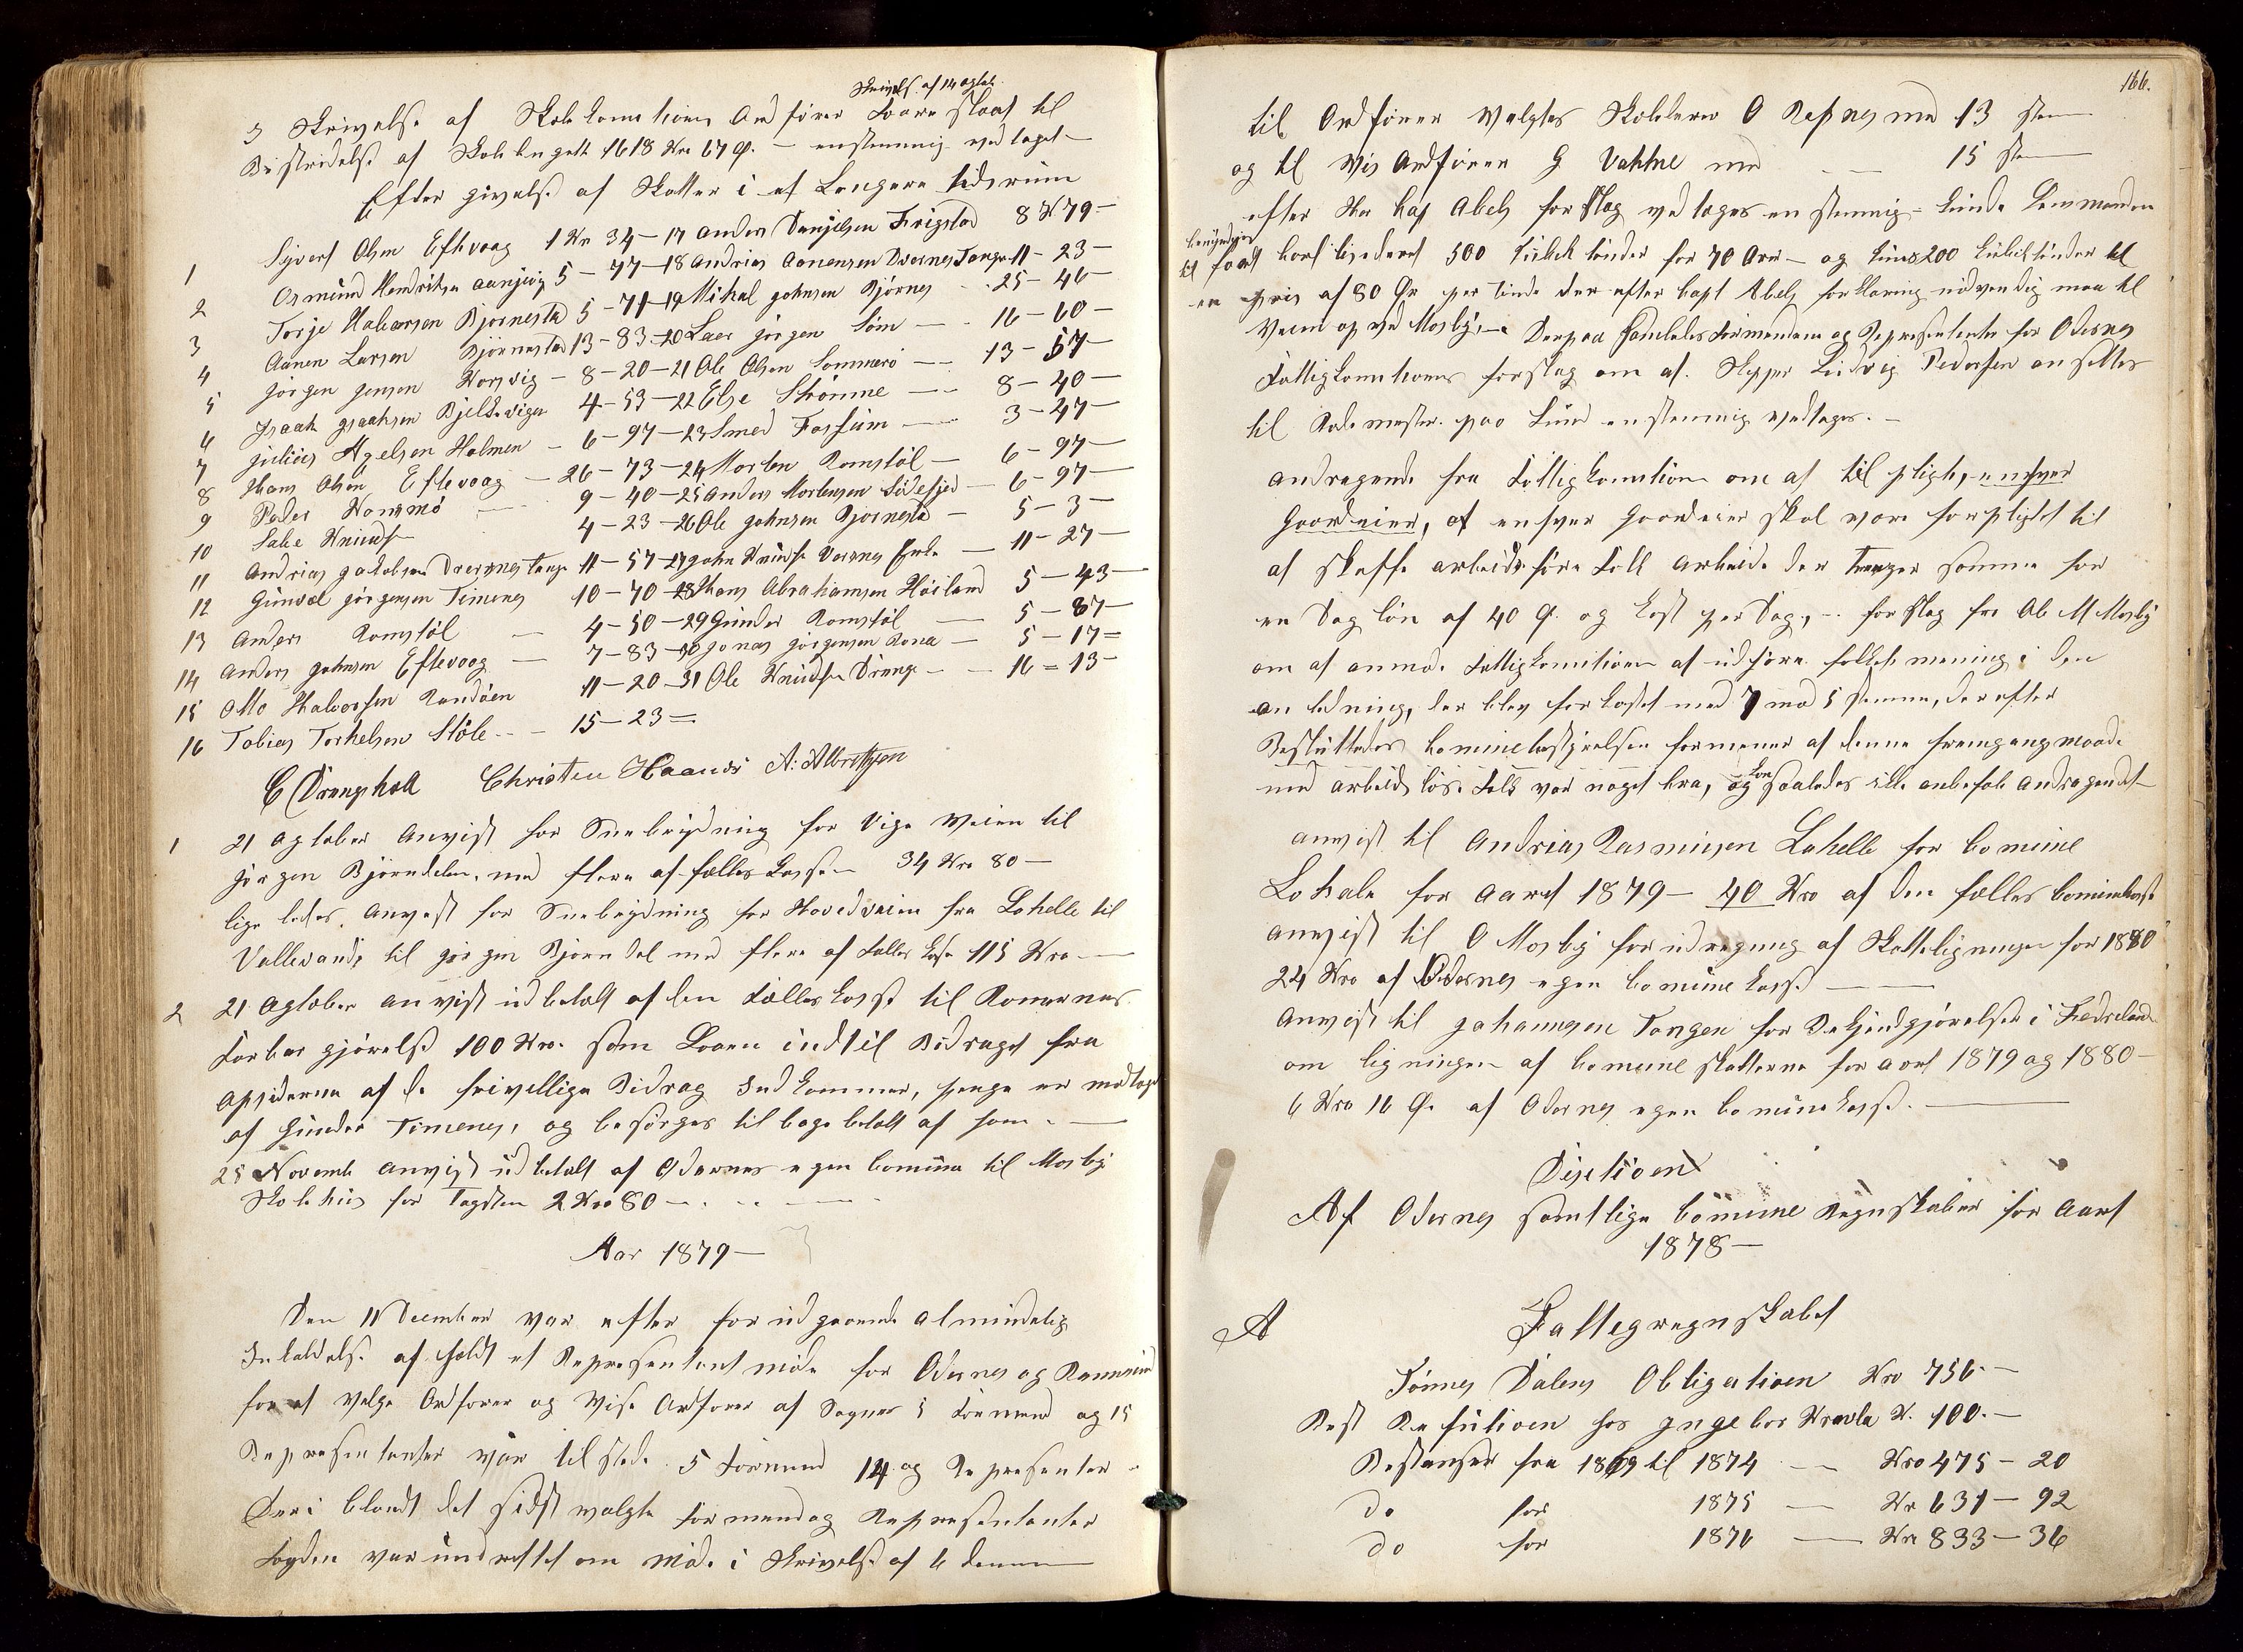 Skrivelse af 14 agtob.
5 Skrivelse af Skole Komitionens Ordförer Foare slaat til
Bestridelse af Skole Engelt 1618 Kro 67 Ø. — enstemmig vedtaget —
Efter givelse af Skatter i et Længere tidsrum
1 Syvert Olsen Eftevaag 1 Kr 34 — 17 Anders Danjelsen Frigstad 8 K 79 —
2 Osmund Hendriksen Aanjevig 5 — 77 — 18 Andrias Aanensen Dversnes Tange 11 — 23 —
3 Torje Halvorsen Bjornestad 5 — 71 — 19 Mikal Johnsen Björnes — 25 — 46
4 Aanen Larsen Björnestad 13 — 83 — 20 Laers Jörgen Söm — 16 — 60 —
5 Jörgen Jensen Korsvig — 8 — 20 — 21 Ole Olsen Sommerö — 13 — 57 —
6 Isaak Isaaksen Bjelkevigen 4 — 53 — 22 Else Strömme — 8 — 40 —
7 Julius Agelsen Holmen — 6 — 97 — 23 Smed Fosseim — 3 — 27 —
8 Hans Olsen Eftevaag — 26 — 73 — 24 Morten Romstöl — 6 — 97 —
9 Peder Konsmo — 9 — 40 — 25 Anders Mortensen Södefjed — 6 — 97 —
10 Sale Knudsen 4 — 23 — 26 Ole Johnsen Bjornestad — 5 — 3 —
11 Andrias Jakobsen Dversnes Tange 11 — 57 — 27 John Knudsen Voesnes Enke — 11 — 27 —
12 Gunvol Jörgensen Timenes 10 — 70 — 28 Hans Abrahamsen Höiland 5 — 43 —
13 Anders Romstöl — 4 — 50 — 29 Gunder Romstöl — 5 — 87 —
14 Anders Johnsen Eftevaag — 7 — 83 — 30 Jonas Jörgensen Rona — 5 — 17 =
15 Otto Halvorsen Randöen 11 — 20 — 31 Ole Knudsen Drange — 16 = 13 —
16 Tobias Torkelsen Stöle — 15 — 23 =
C Drangsholt Christen Haanes A. Albretsen
1 21 Agtober Anvist for Snebrydning for Vige Veien til
Jörgen Björndalen med flere af fælles Kassen 34 Kro 80 —
lige ledes Anvist for Snebrydning for Hovedveien fra Lahelle til
Vollevande til Jörgen Bjorndal med flere af Fælles Kase 115 Kro —
2 21 Agtober anvist udbetalt af den Fælles Kasse til Ronernes
Farbar gjörelse 100 Kro. som Laaen indtil Bidraget fra
Opsiderne af de frivellige Bidrag Indkommer, penge er modtaget
af Gunder Timenes, og besörges til bage betalt af ham. —
25 Novemb anvist udbetalt af Odernes egen Comune til Mosby
Skolehus for Tagsten 2 Kro 80 —
Aar 1879 —
Den 11 December var efter for udgaaende almindelig
Inkaldelse af holdt et Representant möde for Odernes og Randesund
for at Velge Ordforer og Vise Ordforer af Sognes 5 Formend og 15
Representanter var tilstede 5 Formend 14 og Representer
Deri blandt det sidst valgte formend og Representanter
Fogden var undrettet om Möde i Skrivelse af 6 dennes
166.
til Ordförer Valgtes Skolelerer O Repnes med 13 stem
og til Vis Ordförer G Vahtne med — 15 stem
efter Hr Kap Abels forslag vedtages enstemmig kunde Lensmanden
bemyndiges
til faat hos 500 tinder for 70 Øre — og 200 tinder til
en pris af 80 Øre per Tinde der efter Capt Abels forklaring nödvendig maa til
Veien op ved Mosby, — Derpaa Formendene og Representanter for Odernes
Fattigkomitions forslag om at Skipper Ludvig Pedersen ansettes
til Rodemester paa Lund enstemmig vedtages. —
Andragende fra Fattigkomition om at tilpligte, enhver
Gaardeier, at enhver Gaardeier skal være forpligtet til
at skaffe arbeidsföre Folk Arbeide der Trenger samme for
en Daglön af 40 Ø. og Kost per Dag, — forslag fra Ole M Mosby
om at anmode Fattigkomitionen at udföre folkets mening i den
anledning, der blev forkastet med 7 mod 5 Stemme, derefter
Besluttedes Cominebestyrelsen formener at denne fremgangsmaade
med arbeidslöse Folk var noget bra, og kan saaledes ikke anbefale Andragendet —
anvist til Andrias Rasmusen Lahelle for Comune
Lokale for Aaret 1879 — 40 Kro af den fælles Comunekasse
Anvist til O Mosby for udregning af Skatteligningen for 1880
24 Kro af Odernes egen Comune Kasse —
Anvist til Johannesen Tangen for Bekjendgjörelser i Fedrelandet
om ligningen af Comune skatterne for aaret 1879 og 1880 —
6 Kro 16 Ø. af Odernes egen Comune Kasse. —
Disetioen
Af Odernes samtlige Comune Regnskaber for Aaret
1878 —
A Fattegregnskabet
Tönnes Dalens Obligatioen Kro 756 —
Rest Refutioen hos Ingebor Kravla K. 100. —
Restanser fra 1869 til 1874 — Kro 475 — 20
do for 1875 — Kr 631 — 92
do for 1876 — Kro 833 — 36